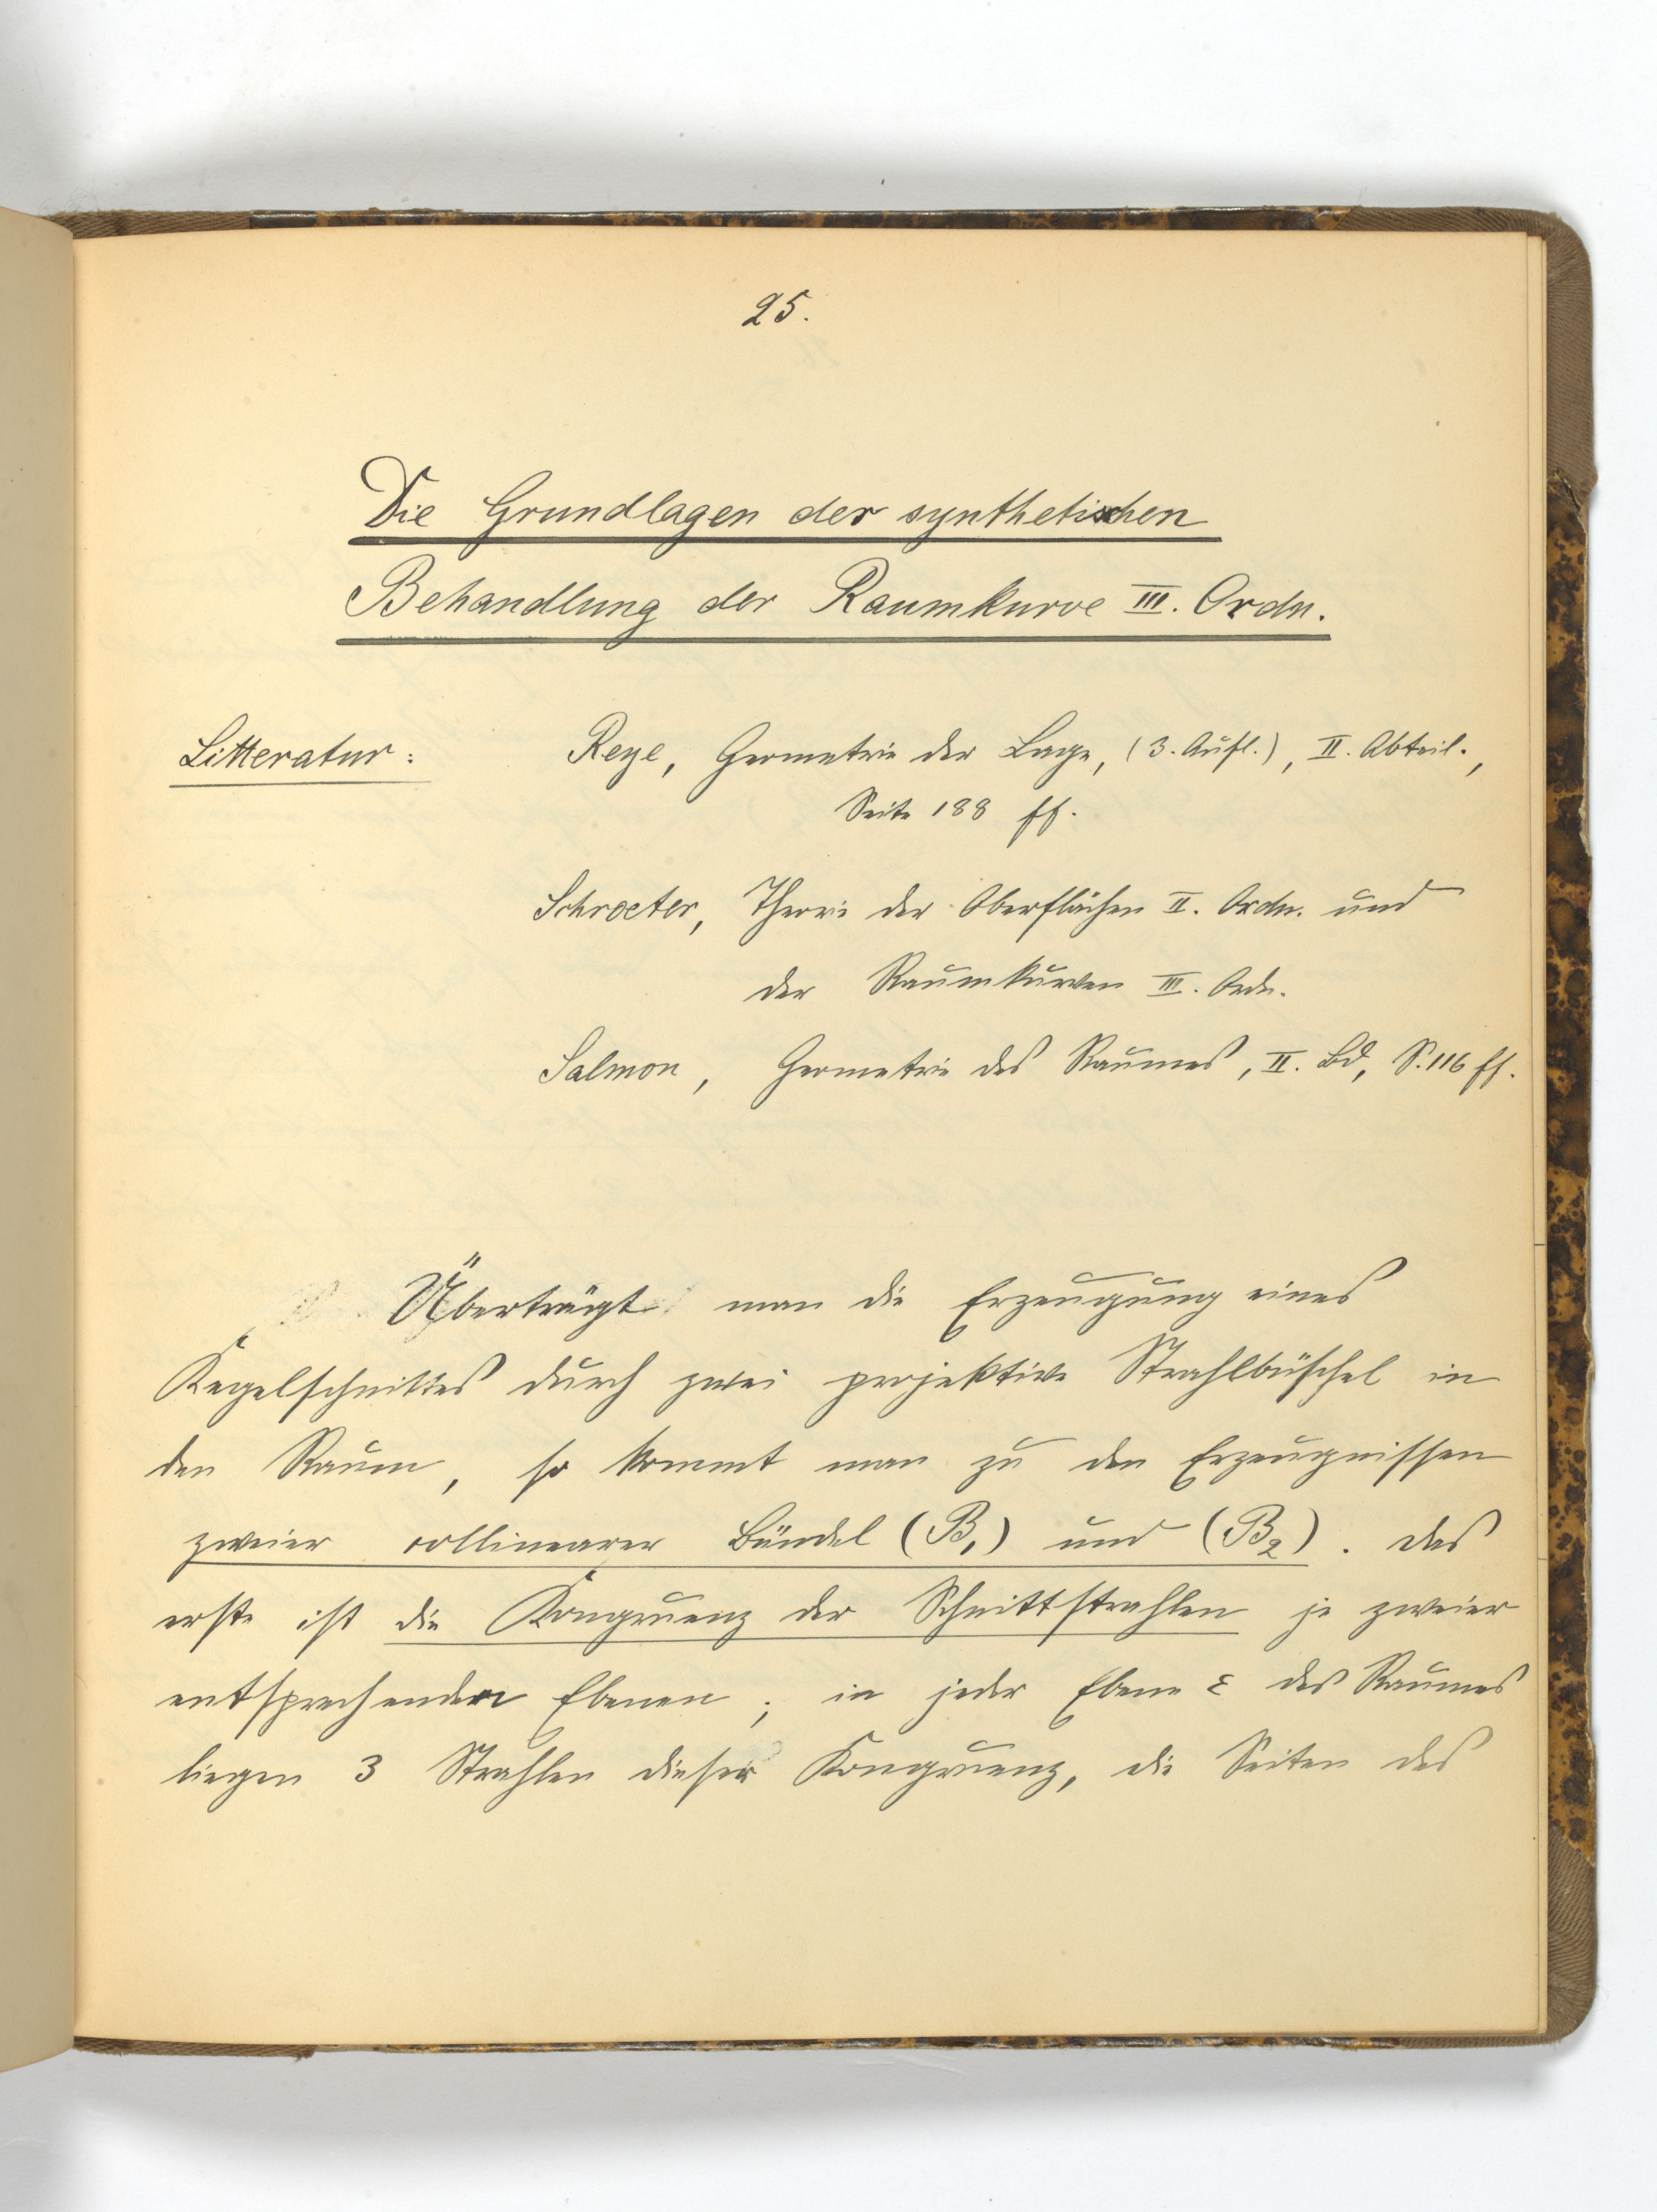 25.
Die Grundlagen der synthetischen
Behandlung der Raumkurve III. Ordn.
Litteratur: Reye, Geometrie der Lage, (3. Aufl.), II. Abteil.,
Seite 188 ff.
Schroeter, Theorie der Oberflächen II. Ordn. und
der Raumkurven III. Ordn.
Salmon, Geometrie des Raumes, II. Bd, S. 116 ff.
Überträgt man die Erzeugung eines
Kegelschnittes durch zwei projektive Strahlbüschel in
den Raum, so kommt man zu den Erzeugnissen
zweier collinearer Bündel (B₁) und (B₂). Das
erste ist die Kongruenz der Schnittstrahlen je zweier
entsprechenden Ebenen; in jeder Ebene ε des Raumes
liegen 3 Strahlen dieser Kongruenz, die Seiten des